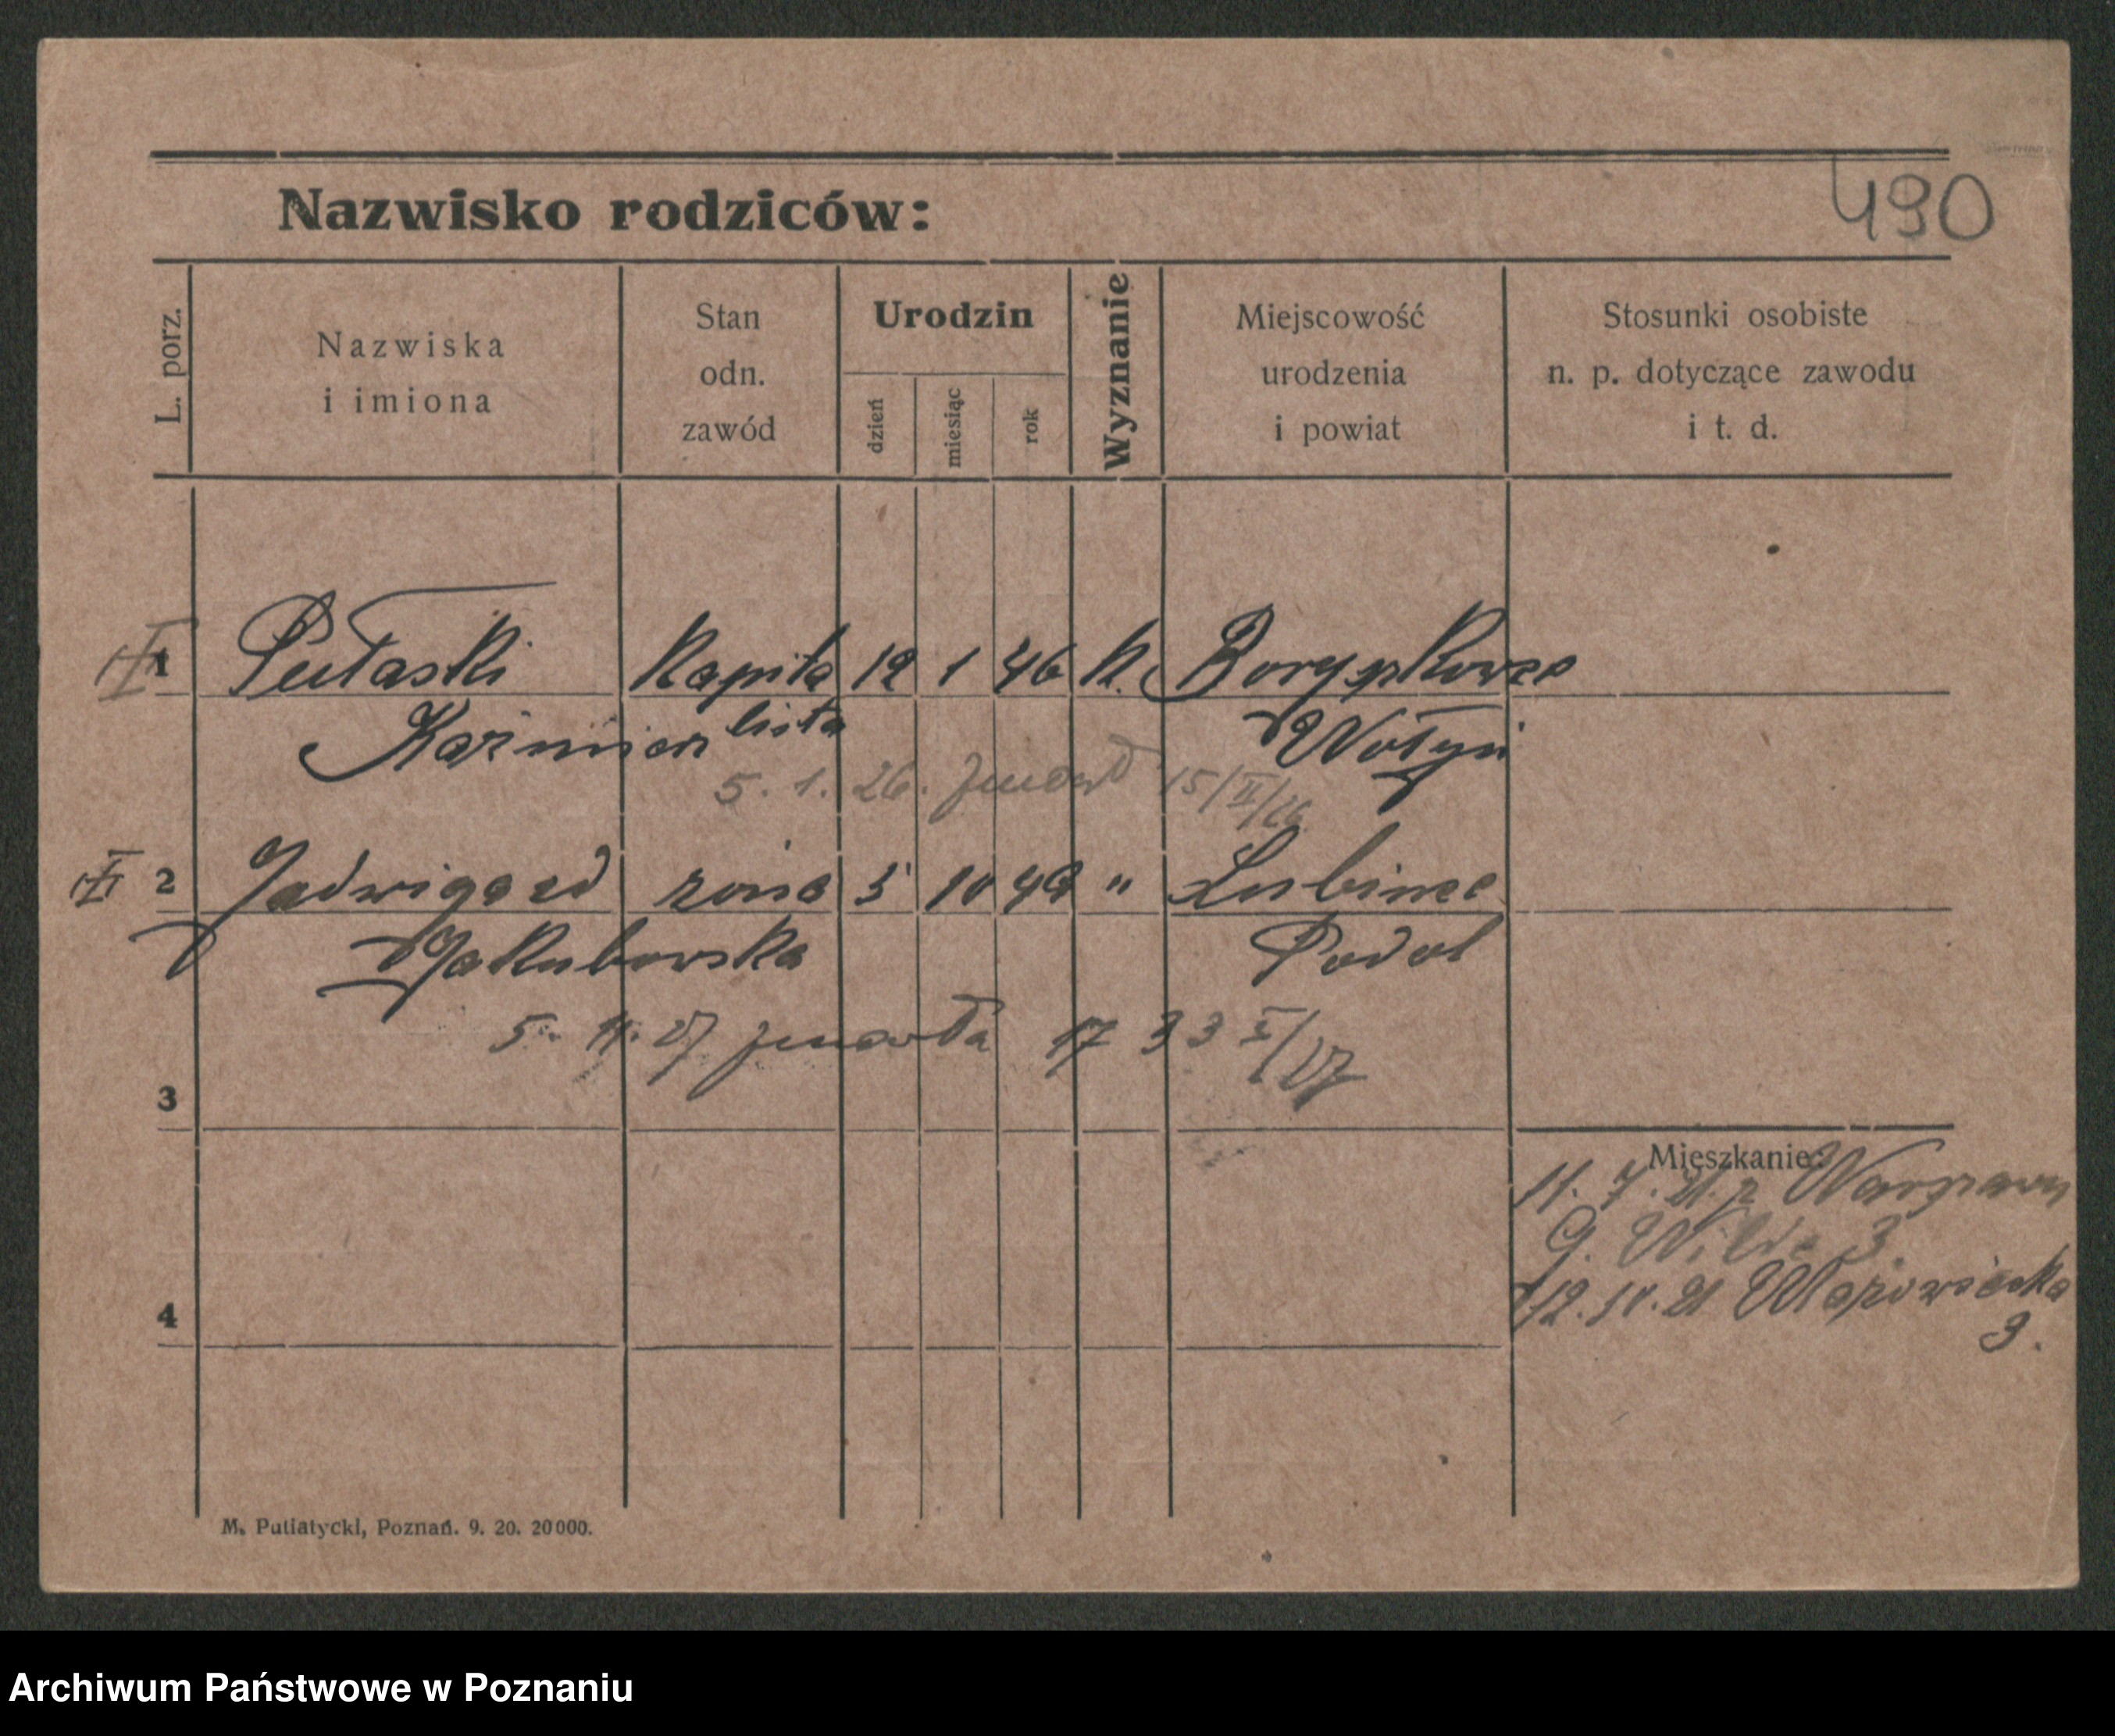 490
Nazwisko rodziców:
L. porz.
Nazwiska
i imiona
Stan
odn.
zawód
Urodzin
dzień
miesiąc
rok
Wyznanie
Miejscowość
urodzenia
i powiat
Stosunki osobiste
n. p. dotyczące zawodu
i t. d.
1 Pułaski Kapita 12 1 46 k.
Kazimierz lista Wołyń
5. 1. 26. zmarł 15/II/26
2 Jadwiga zd żona 5 10 49 " Lubiniec
Jakubowska Podol
5. 11. 27 zmarła 17
3
Mieszkanie:
11. 7. 21. z Warszawy
G. Wilda 3.
12. 10. 21 Mazowiecka
3.
4
M. Putiatycki, Poznań. 9. 20. 20000.
Archiwum Państwowe w Poznaniu